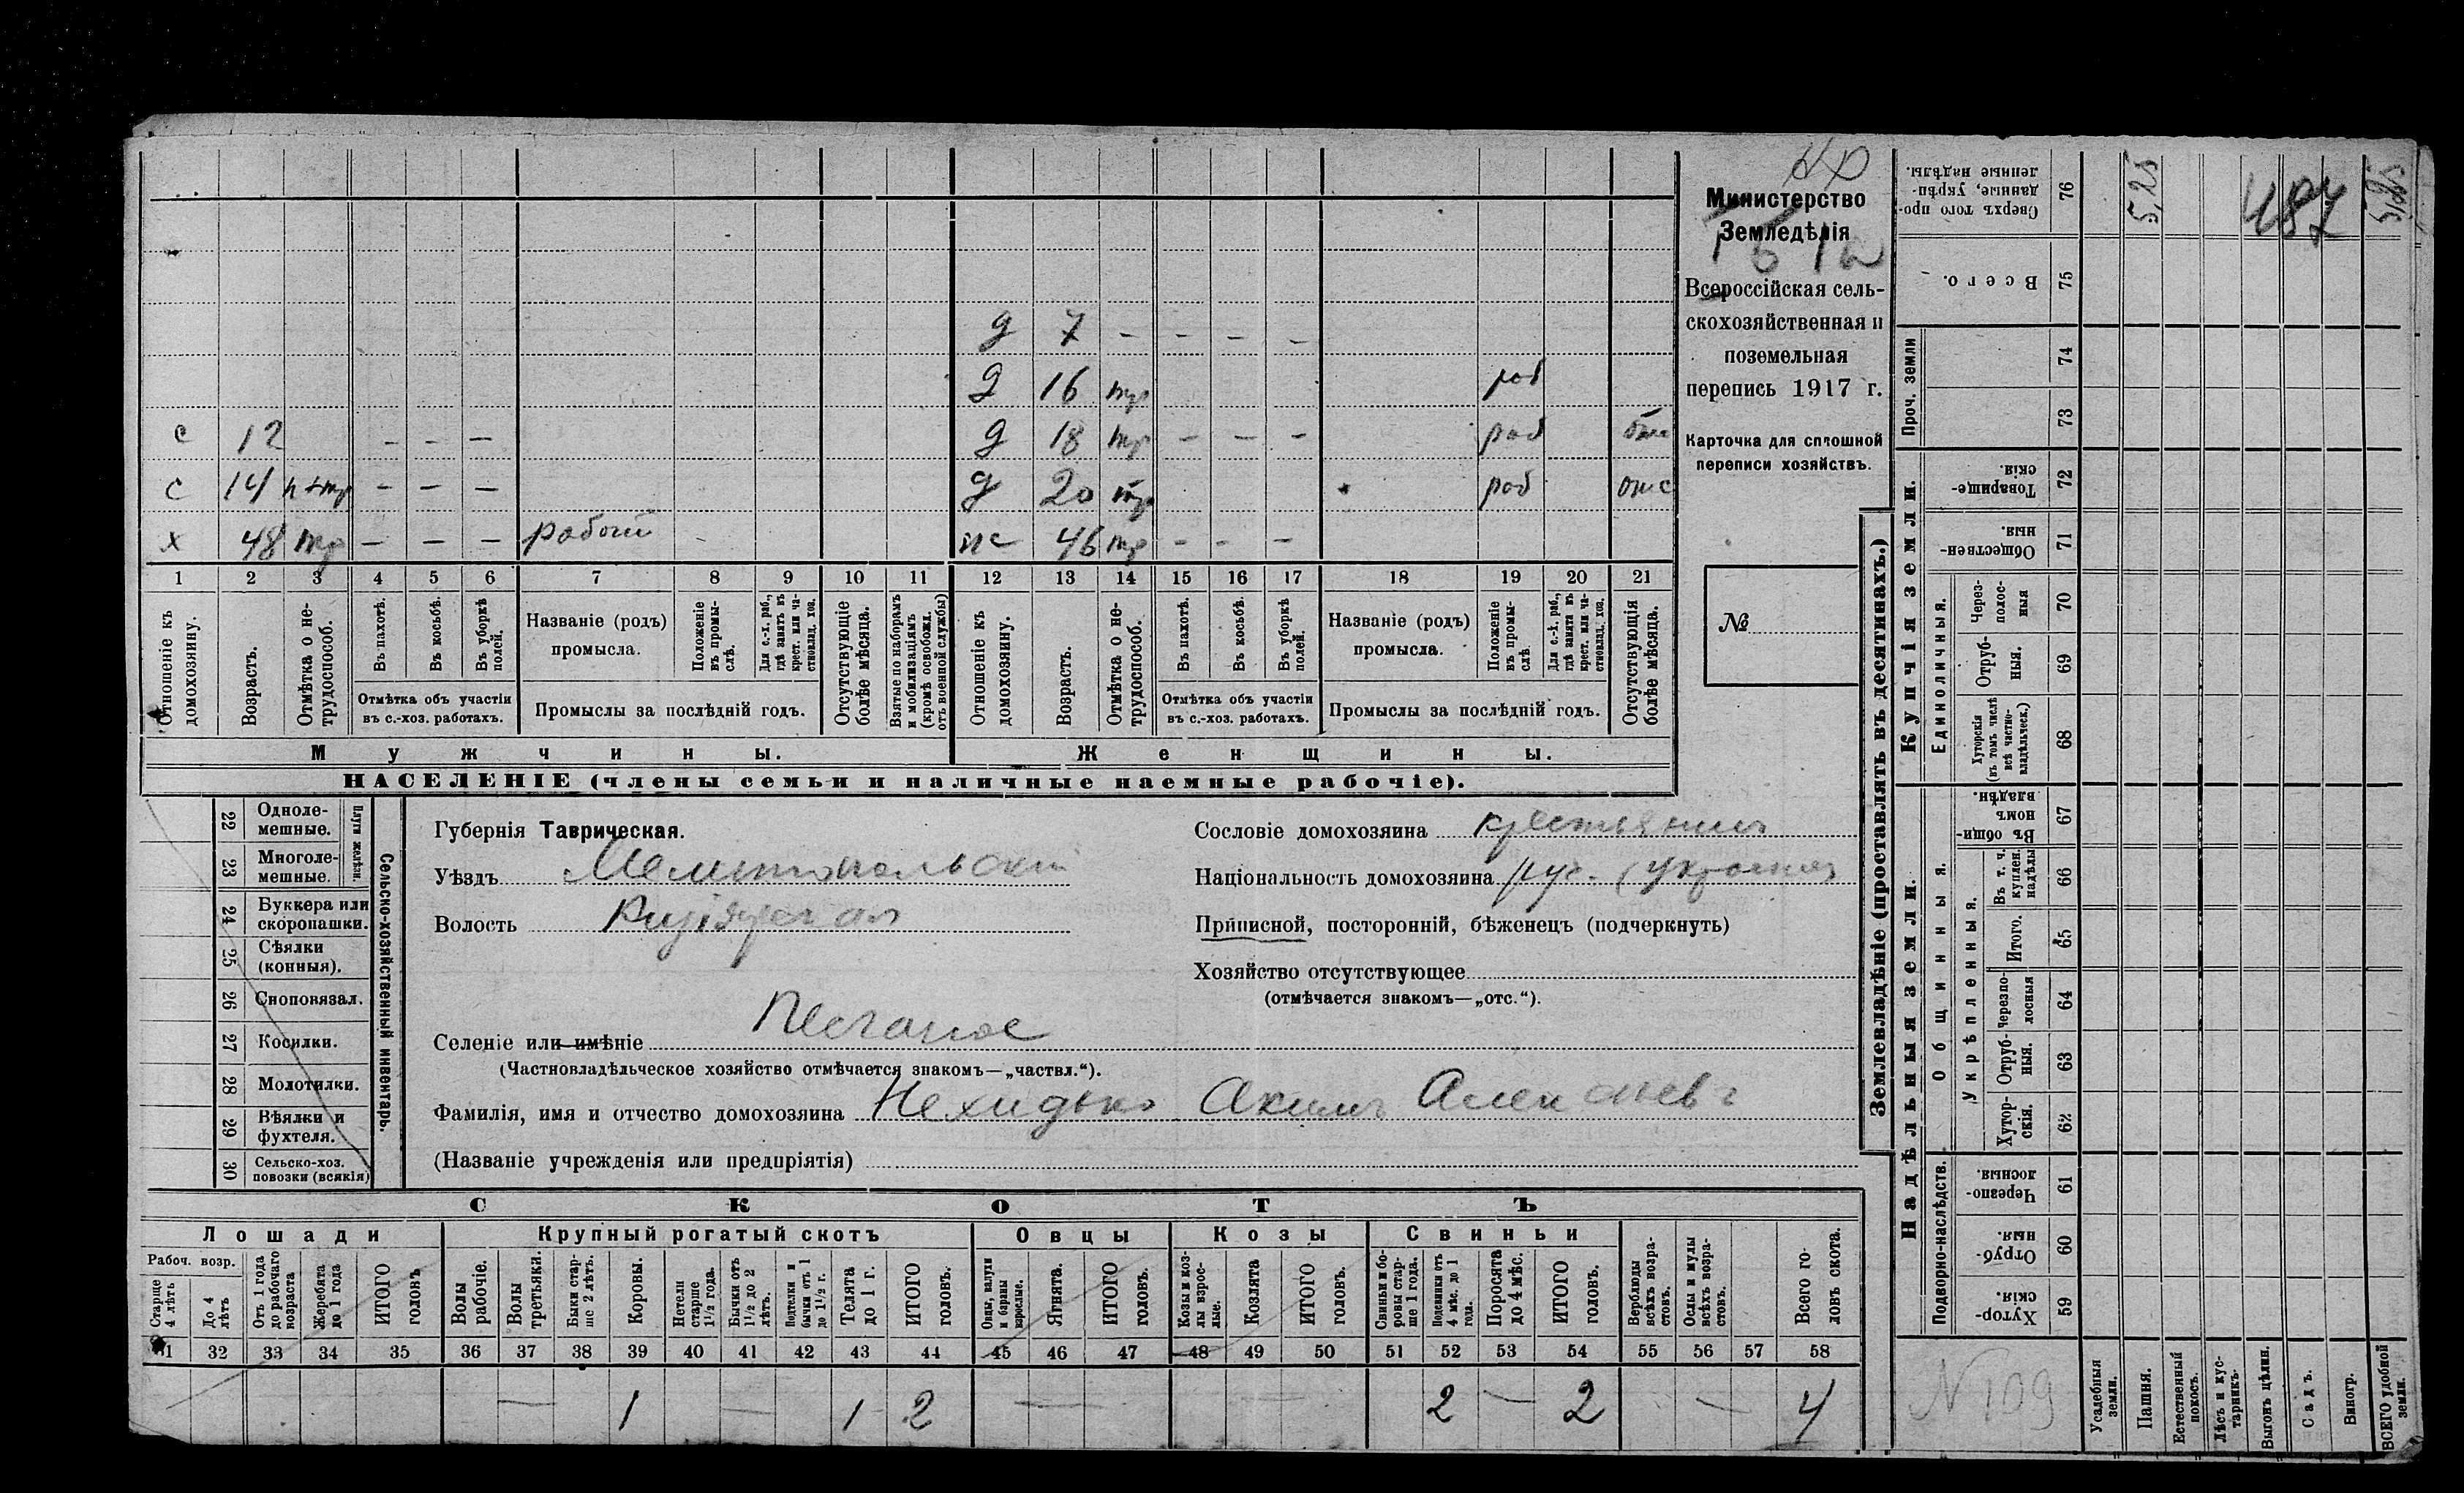 с 12 - - -
с 14 - - -
х 48 тр - - - рабочий
д 7 - - - -
д 16 тр раб
д 18 тр - - - раб
д 20 тр раб отс
46 тр - - -
1 2 3 4 5 6 7 8 9 10 11 12 13 14 15 16 17 18 19 20 21
Отношеніе къ домохозяину.
Возрастъ.
Отмѣтка о не-трудоспособ.
Въ пахотѣ.
Въ косьбѣ.
Въ уборкѣ полей.
Отмѣтка объ участіи
въ с.-хоз. работахъ.
Названіе (родъ)
промысла.
Положеніе въ промы-слѣ.
Для с.-х. раб., гдѣ занятъ въ крест. или ча-стновлад. хоз.
Промыслы за послѣдній годъ.
Отсутствующіе болѣе мѣсяца.
Взятые по наборамъ и мобилизаціямъ (кромѣ освобожд. отъ военной службы)
Отношеніе къ домохозяину.
Возрастъ.
Отмѣтка о не-трудоспособ.
Въ пахотѣ.
Въ косьбѣ.
Въ уборкѣ полей.
Отмѣтка объ участіи
въ с.-хоз. работахъ.
Названіе (родъ)
промысла.
Положеніе въ промы-слѣ.
Для с.-х. раб., гдѣ занята въ крест. или ча-стновлад. хоз.
Промыслы за послѣдній годъ.
Отсутствующія болѣе мѣсяца.
Мужчины.
Женщины.
НАСЕЛЕНІЕ (члены семьи и наличные наемные рабочіе).
Министерство
Земледѣлія
Всероссійская сель-
скохозяйственная и
поземельная
перепись 1917 г.
Карточка для сплошной
переписи хозяйствъ.
№
22 Одноле-мешные.
23 Многоле-мешные.
Плуги желѣзн.
24 Буккера или скоропашки.
25 Сѣялки (конныя).
26 Сноповязал.
27 Косилки.
28 Молотилки.
29 Вѣялки и фухтеля.
30 Сельско-хоз. повозки (всякія)
Сельско-хозяйственный инвентарь.
Губернія Таврическая.
Уѣздъ Мелитопольскій
Волость
Селеніе или имѣніе Песчаное
(Частновладѣльческое хозяйство отмѣчается знакомъ—„частвл.“).
Фамилія, имя и отчество домохозяина Нехидько Акимъ
(Названіе учрежденія или предпріятія)
Сословіе домохозяина крестьянинъ
Національность домохозяина рус.
Приписной, посторонній, бѣженецъ (подчеркнуть)
Хозяйство отсутствующее
(отмѣчается знакомъ—„отс.“).
СКОТЪ
Лошади
Крупный рогатый скотъ
Овцы
Козы
Свиньи
Рабоч. возр.
Старше 4 лѣтъ
До 4 лѣтъ
Отъ 1 года до рабочаго возраста
Жеребята до 1 года
ИТОГО головъ
Волы рабочіе.
Волы третьяки.
Быки стар-ше 2 лѣтъ.
Коровы.
Нетели старше 1½ года.
Бычки отъ 1½ до 2 лѣтъ.
Подтелки и бычки отъ 1 до 1½ г.
Телята до 1 г.
ИТОГО головъ.
Овцы, валухи и бараны взрослые.
Ягнята.
ИТОГО головъ.
Козы и коз-лы взрос-лые.
Козлята
ИТОГО головъ.
Свиньи и бо-ровы стар-ше 1 года.
Подсвинки отъ 4 мѣс. до 1 года.
Поросята до 4 мѣс.
ИТОГО головъ.
Верблюды всѣхъ возра-стовъ.
Ослы и мулы всѣхъ возра-стовъ.
Всего го-ловъ скота.
31 32 33 34 35 36 37 38 39 40 41 42 43 44 45 46 47 48 49 50 51 52 53 54 55 56 57 58
— 1 — 1 2 — — 2 — 2 — 4
Землевладѣніе (проставлять въ десятинахъ.)
Надѣльныя земли.
Купчія земли.
Проч. земли
Подворно-наслѣдств.
Общинныя.
Укрѣпленныя.
Единоличныя.
Сверхъ того про-данные, укрѣп-ленные надѣлы. 76
Всего. 75
74
73
Товарище-скія. 72
Обществен-ныя. 71
Через-полос-ныя 70
Отруб-ныя. 69
Хуторскія (въ томъ числѣ всѣ частно-владѣльческ.) 68
Въ общин-номъ владѣн. 67
Въ т. ч. куплен. надѣлы 66
Итого. 65
Черезпо-лосныя 64
Отруб-ныя. 63
Хутор-скія. 62
Черезпо-лосныя. 61
Отруб-ныя. 60
Хутор-скія. 59
5,25
487
5,25
N 109
Усадебныя земли.
Пашня.
Естественный покосъ.
Лѣсъ и кус-тарникъ.
Выгонъ цѣлин.
Садъ.
Виногр.
ВСЕГО удобной земли.